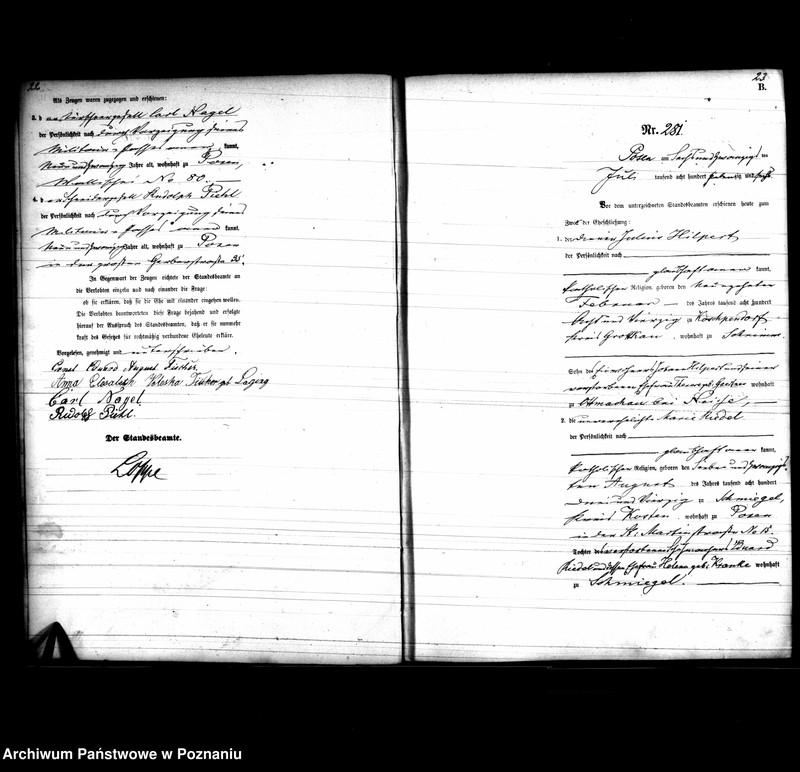 22
Als Zeugen waren zugezogen und erschienen:
3. d Carl Nagel
der Persönlichkeit nach durch Vorzeigung seines
Militair-Passes kannt,
neun und zwanzig Jahre alt, wohnhaft zu Posen,
Wallischei No 80.
4. d Rudolph Piehl
der Persönlichkeit nach durch Vorzeigung seines
Militair-Passes kannt,
Jahre alt, wohnhaft zu Posen
in der großen Gerberstraße
In Gegenwart der Zeugen richtete der Standesbeamte an
die Verlobten einzeln und nach einander die Frage:
ob sie erklären, daß sie die Ehe mit einander eingehen wollen.
Die Verlobten beantworteten diese Frage bejahend und erfolgte
hierauf der Ausspruch des Standesbeamten, daß er sie nunmehr
kraft des Gesetzes für rechtmäßig verbundene Eheleute erkläre.
Vorgelesen, genehmigt und unterschrieben.
Ernst Eduard August Fischer
Anna Elisabeth Valeska Fischer geb
Carl Nagel.
Rudolf Piehl.
Der Standesbeamte.
23
B.
Nr. 281.
Posen am Sechs und zwanzigsten
Juli tausend acht hundert siebenzig und sechs
Vor dem unterzeichneten Standesbeamten erschienen heute zum
Zweck der Eheschließung:
1. der Julius Hilpert
der Persönlichkeit nach
kannt,
katholischer Religion, geboren den neunzehnten
Februar des Jahres tausend acht hundert
Acht und vierzig zu Koschpendorf
Kreis Grottkau, wohnhaft zu Schrimm
Sohn des Hilpert und seiner
verstorbenen Ehefrau wohnhaft
zu Ottmachau bei Neisse
2. die unverehelichte Marie Riedel
der Persönlichkeit nach
kannt,
katholischer Religion, geboren den Sieben und zwanzig
ten August des Jahres tausend acht hundert
drei und vierzig zu Schmiegel,
Kreis Kosten, wohnhaft zu Posen
in der St. Martinstraße No
Tochter des verstorbenen Eduard
Riedel und dessen Ehefrau Helena geb. Kranke wohnhaft
zu Schmiegel.
Archiwum Państwowe w Poznaniu